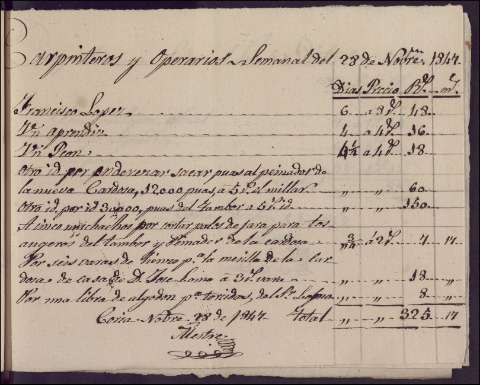 Carpinteros y Operarios Semanal del 28 de Nobre 1847
Dias Precio Rs. ms.
Francisco Lopez 6 a 8 rs. 48
Un aprendiz 4 a 4 rs. 16
Un Peon 4½ a 4 rs. 18
otro id. por enderezar sacar puas al peinador de
la nueva Cardosa, 12000 puas a 5 rs. el millar " " 60
otro id. por id. 30,000, puas del tambor a 5 rs. id " " 150
A cinco muchachos por cortar palos de jara para los
del tambor y Peinador de la cardosa a 2 rs. 7 17
Por seis varas de lienzo pa. la mesilla de la
de casa de D. Jose a 3 rs. vara " " 18
Por una libra de algodon pa. torcidas, de Sr. " " 8
Coria Nobre. 28 de 1847 Total " " 325 17
Mestre